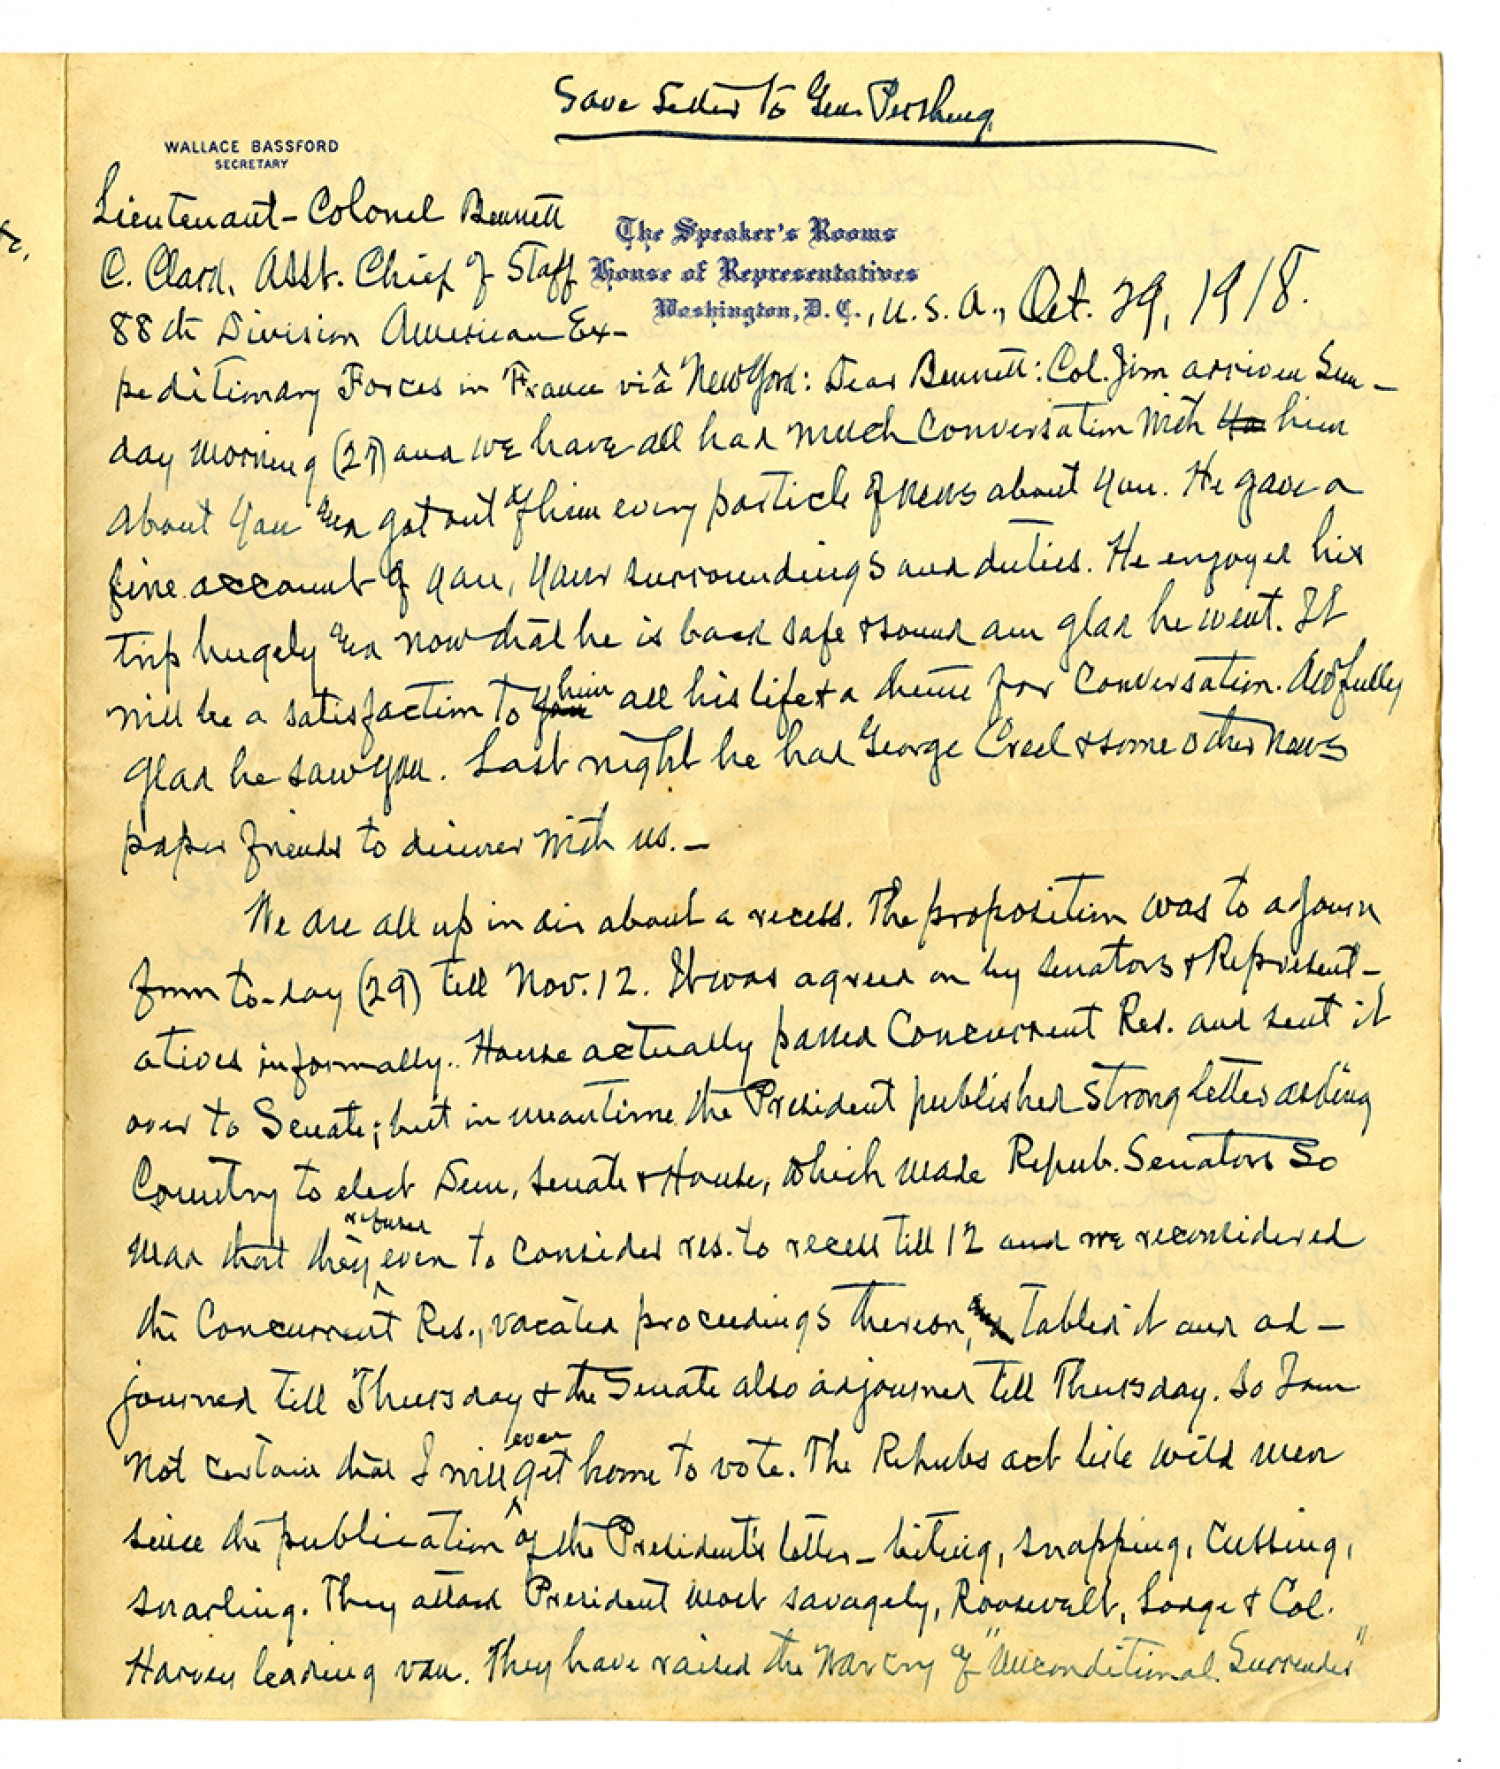 Save Letter to Gen. Pershing
WALLACE BASSFORD
SECRETARY
Lieutenant-Colonel Bennett
C. Clark, Asst. Chief of Staff
The Speaker's Rooms
House of Representatives
Washington, D. C., U. S. A., Oct. 29, 1918.
88th Division American Ex-
peditionary Forces in France via New York: Dear Bennett: Col. Jim arrived Sun-
day morning (27) and we have all had much conversation with him
about you and got out of him every particle of news about you. He gave a
fine account of you, your surroundings and duties. He enjoyed his
trip hugely and now that he is back safe & sound am glad he went. It
will be a satisfaction to him all his life & a theme for conversation. Awfully
glad he saw you. Last night he had George Creel & some other news
paper friends to dinner with us. —
We are all up in air about a recess. The proposition was to adjourn
from to-day (29) till Nov. 12. It was agreed on by Senators & Represent-
atives informally. House actually passed Concurrent Res. and sent it
over to Senate; but in meantime the President published strong letter asking
Country to elect Dem. Senate & House, which made Repub. Senators so
mad that they refused even to consider res. to recess till 12 and we reconsidered
the Concurrent Res., vacated proceedings thereon, tabled it and ad-
journed till Thursday & the Senate also adjourned till Thursday. So I am
not certain that I will even get home to vote. The Repubs act like wild men
since the publication of the President's letter — biting, snapping, cussing,
snarling. They attack President most savagely, Roosevelt, Lodge & Col.
Harvey leading van. They have raised the war cry of "Unconditional Surrender"